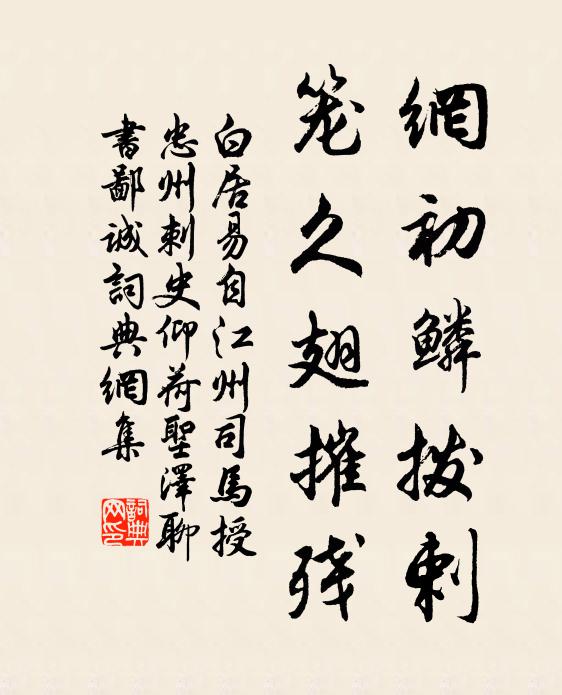 網初鱗拨剌
笼久翅摧残
白居易自江州司馬授
忠州刺史仰荷聖澤聊
書鄙誠詞典網集
詞典
网印